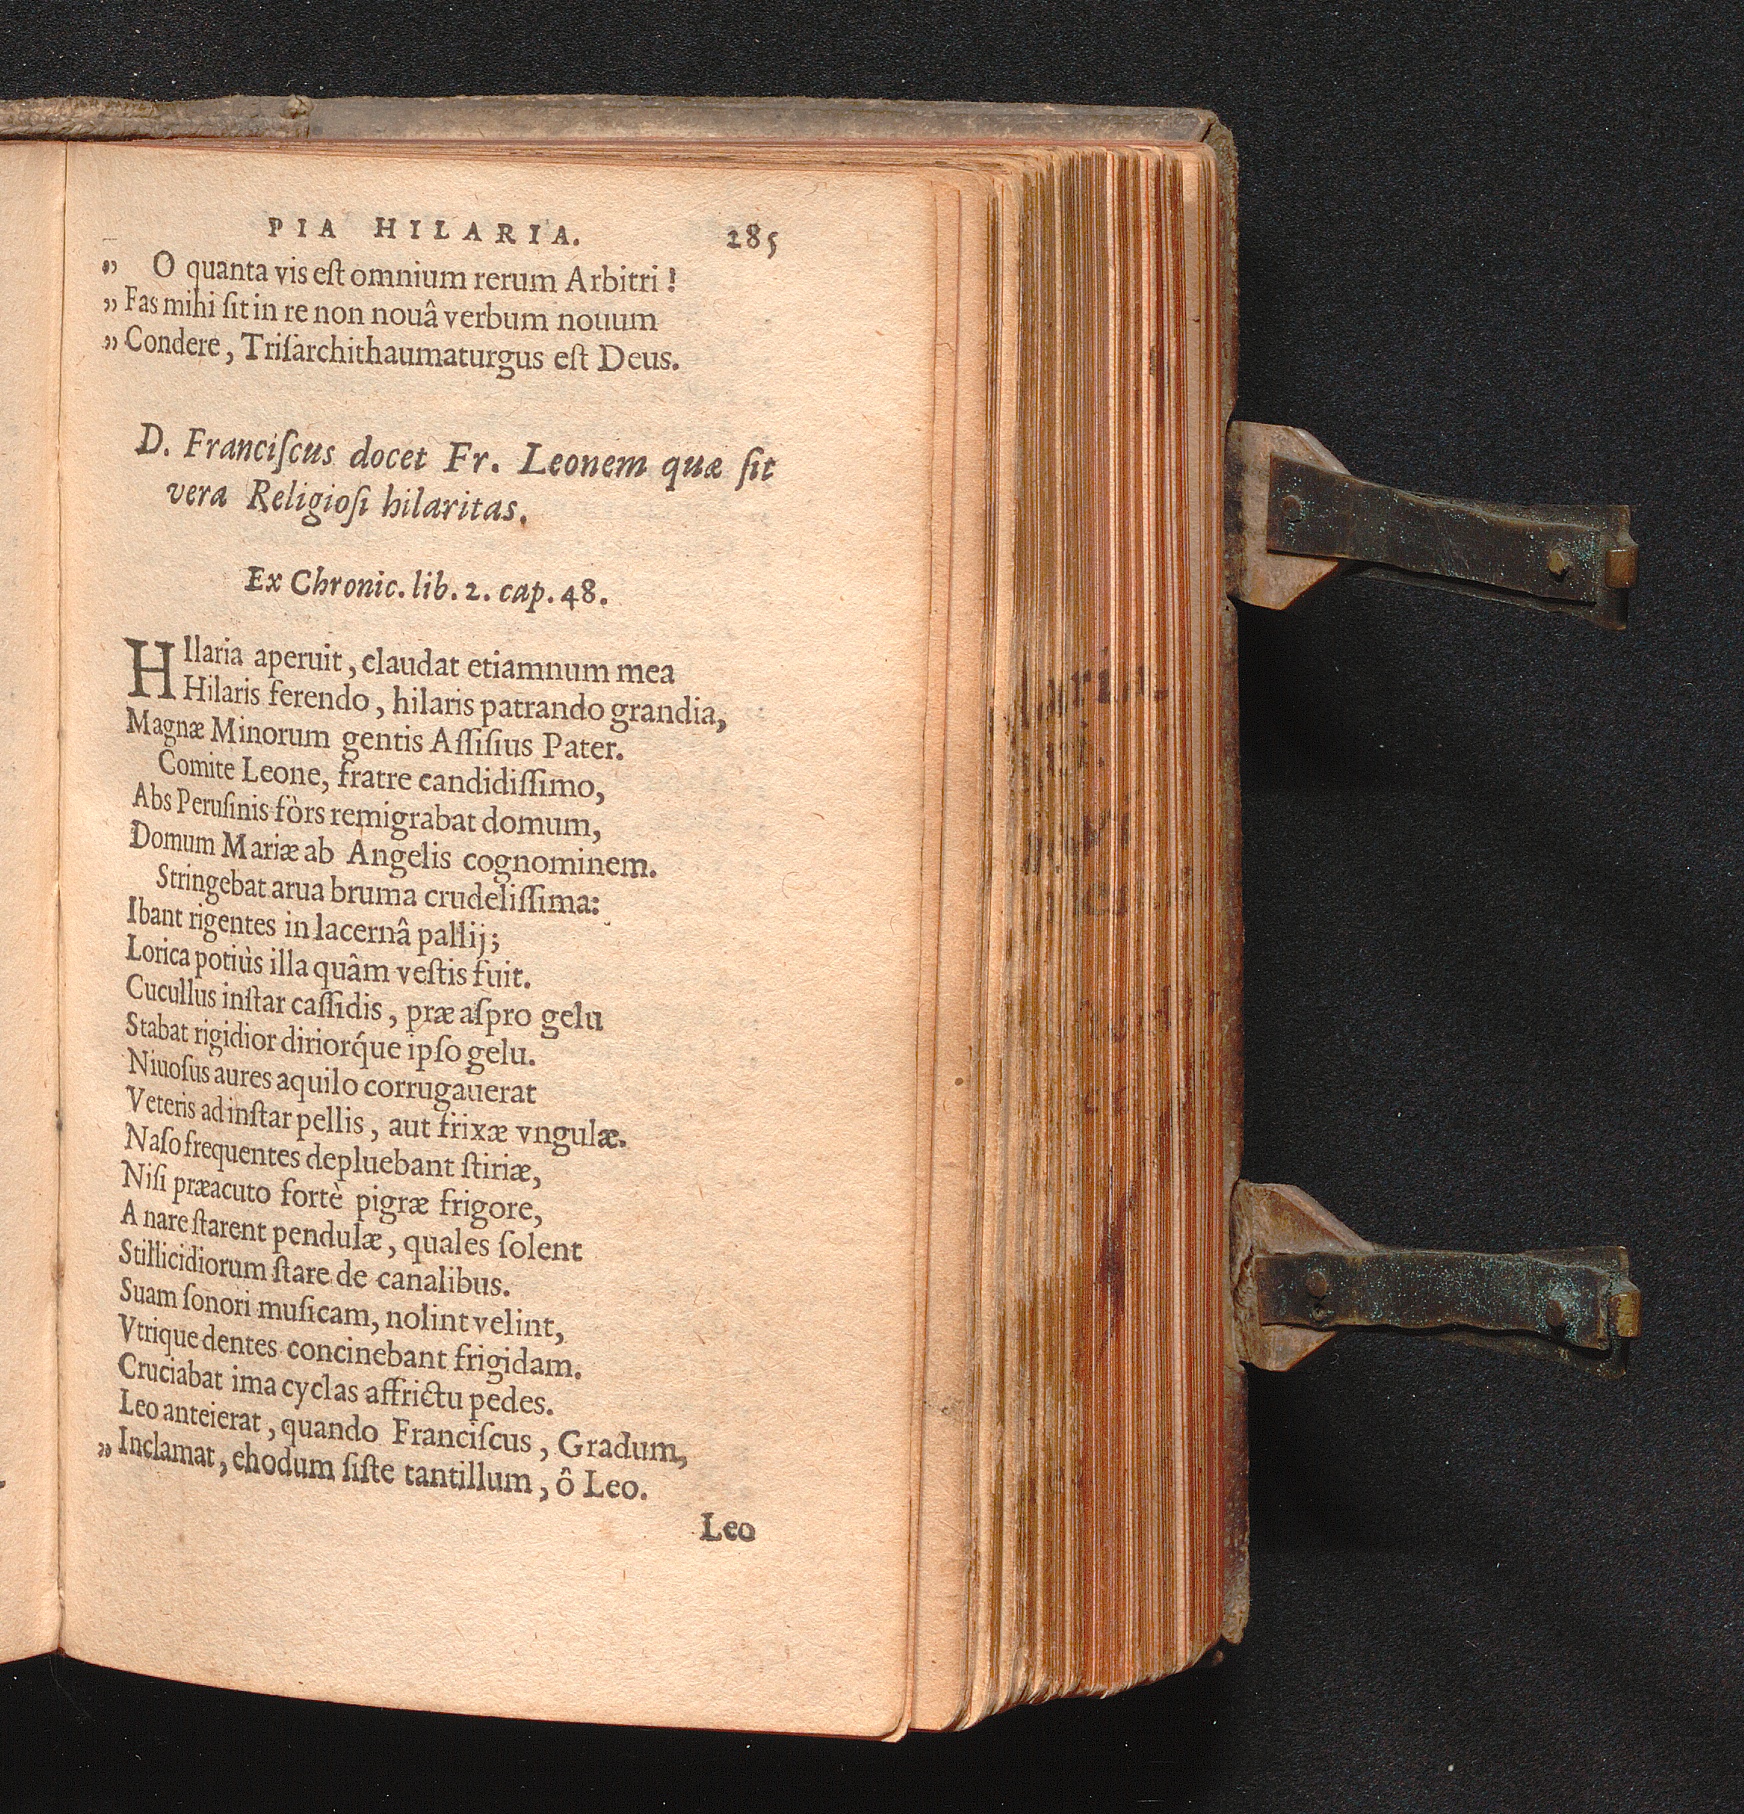 PIA HILARIA. 285
„ O quanta vis eſt omnium rerum Arbitri!
„ Fas mihi ſit in re non nouâ verbum nouum
„ Condere, Triſarchithaumaturgus eſt Deus.
D. Franciſcus docet Fr. Leonem quæ ſit
vera Religioſi hilaritas.
Ex Chronic. lib. 2. cap. 48.
HIlaria aperuit, claudat etiamnum mea
Hilaris ferendo, hilaris patrando grandia,
Magnæ Minorum gentis Aſſiſius Pater.
Comite Leone, fratre candidiſſimo,
Abs Peruſinis fòrs remigrabat domum,
Domum Mariæ ab Angelis cognominem.
Stringebat arua bruma crudeliſſima:
Ibant rigentes in lacernâ pallij;
Lorica potiùs illa quâm veſtis fuit.
Cucullus inſtar caſſidis, præ aſpro gelu
Stabat rigidior diriorq́ue ipſo gelu.
Niuoſus aures aquilo corrugauerat
Veteris ad inſtar pellis, aut frixæ vngulæ.
Naſo frequentes depluebant ſtiriæ,
Niſi præacuto fortè pigræ frigore,
A nare ſtarent pendulæ, quales ſolent
Stillicidiorum ſtare de canalibus.
Suam ſonori muſicam, nolint velint,
Vtrique dentes concinebant frigidam.
Cruciabat ima cyclas affrictu pedes.
Leo anteierat, quando Franciſcus, Gradum,
„ Inclamat, ehodum ſiſte tantillum, ô Leo.
Leo